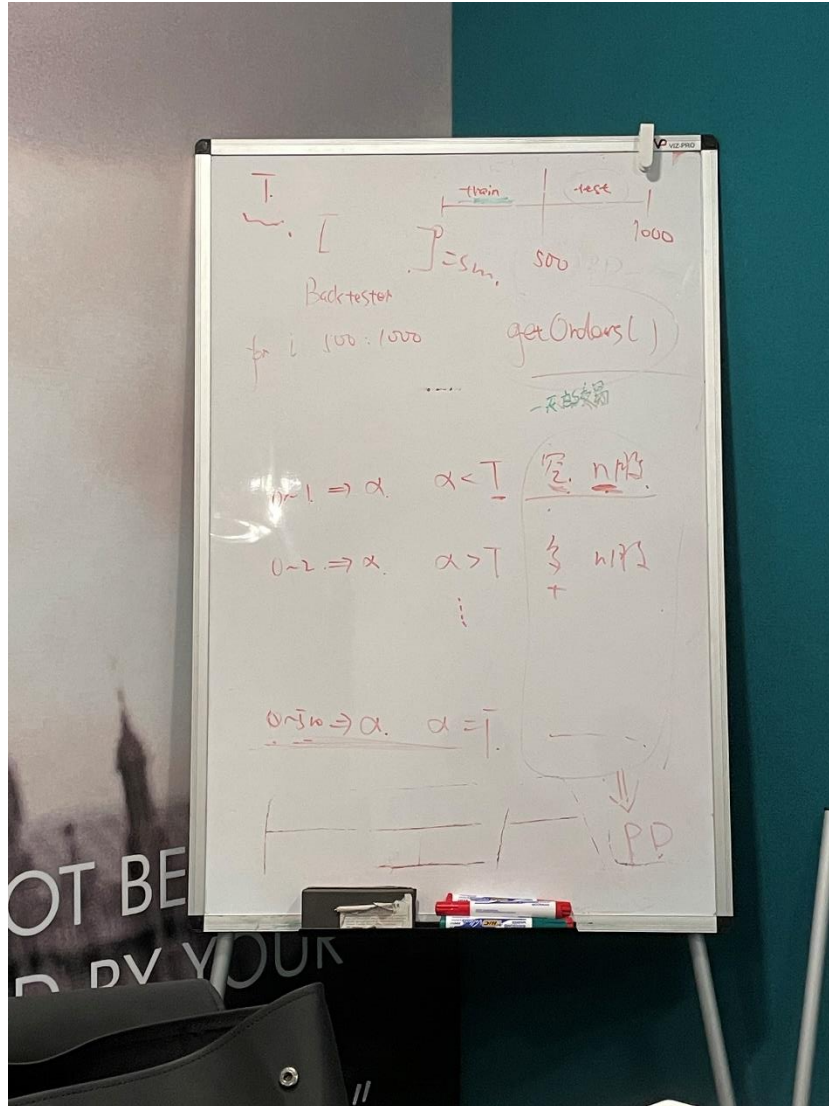 VP VIZ-PRO
T. train test
[ ] = 5m. 500 1000
Backtester
for i 500:1000 getOrders()
一天的交易
0~1 ⇒ α. α < T 空. n股
0~2 ⇒ α. α > T 多 n股
+
⋮
⇒ α. α = T.
PD
OT BE
D BY YOUR
"